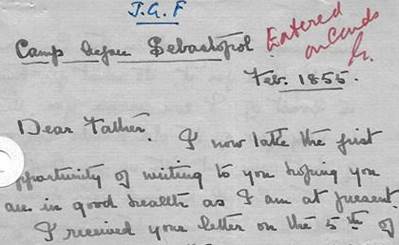 J.G.F
Camp before Sebastopol.
Entered
on Cards
Feb. 1855.
Dear Father. I now take the first
opportunity of writing to you hoping you
are in good health as I am at present.
I received your letter on the 5th of